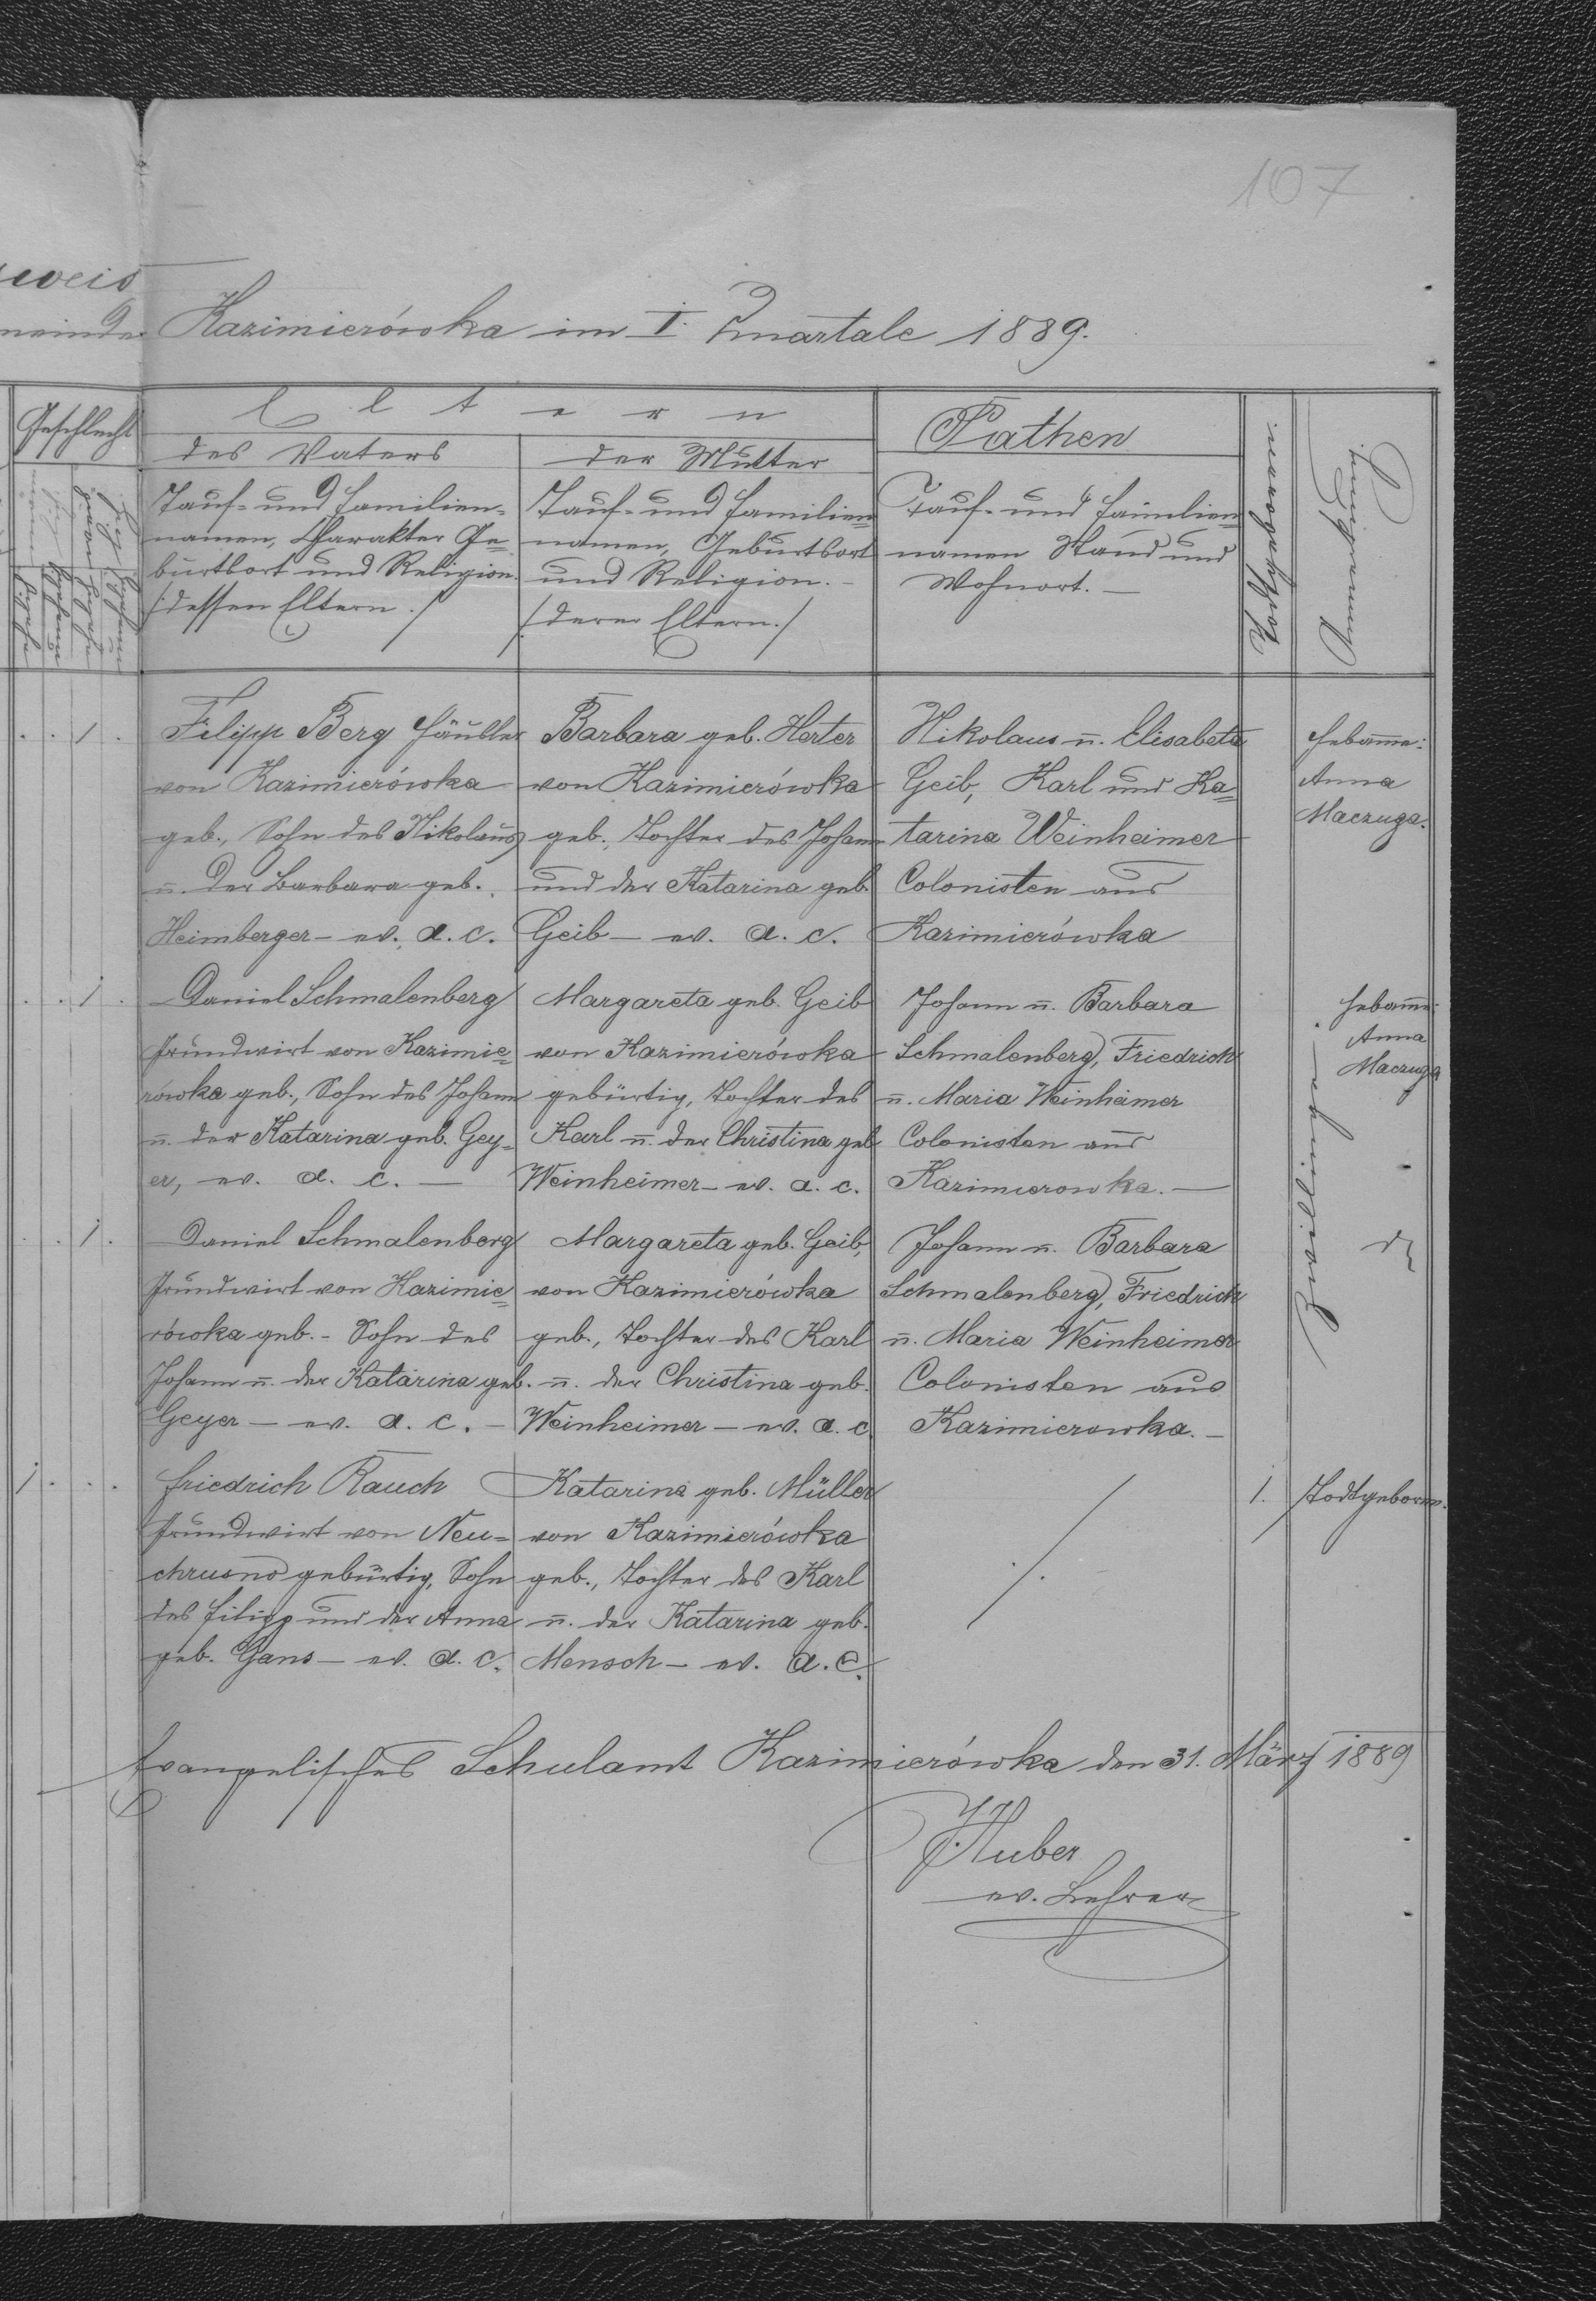 107
weis
meinde Kazimierówka im I. Quartale 1889.
Geschlecht
Eltern
des Vaters
der Mutter
Pathen
Todtgeboren
Anmerkung
Tauf- und Familien=
namen, Charakter Ge=
burtsort und Religion.
/: dessen Eltern :/
Tauf- und Familien=
namen, Geburtsort
und Religion. –
/: deren Eltern :/
Tauf- und Familien=
namen Stand und
Wohnort. –
. . 1 .
Filipp Berg Häusler
von Kazimierówka
geb., Sohn des Nikolaus
u. der Barbara geb.
Heimberger – ev. a. c.
Barbara geb. Herter
von Kazimierówka
geb., Tochter des Johann
und der Katarina geb.
Geib – ev. a. c.
Nikolaus u. Elisabeta
Geib, Karl und Ka=
tarina Weinheimer
Colonisten aus
Kazimierówka
Hebamme:
Anna
Maczuga.
. . 1 .
Daniel Schmalenberg
Grundwirt von Kazimie=
rówka geb., Sohn des Johann
u. der Katarina geb. Gey=
er, ev. a. c. –
Margareta geb. Geib
von Kazimierówka
gebürtig, Tochter des
Karl u. der Christina geb
Weinheimer – ev. a. c.
Johann u. Barbara
Schmalenberg, Friedrich
u. Maria Weinheimer
Colonisten aus
Kazimierowka. –
Zwillinge.
Hebamme:
Anna
Maczuga
. . 1 .
Daniel Schmalenberg
Grundwirt von Kazimie=
rówka geb. – Sohn des
Johann u. der Katarina geb.
Geyer – ev. a. c. –
Margareta geb. Geib,
von Kazimierówka
geb., Tochter des Karl
u. der Christina geb.
Weinheimer – ev. a. c.
Johann u. Barbara
Schmalenberg, Friedrich
u. Maria Weinheimer
Colonisten aus
Kazimierowka. –
1 . . .
Friedrich Rauch
Grundwirt von Neu=
chrusno gebürtig, Sohn
des Filipp und der Anna
geb. Gans – ev. a. c.
Katarina geb. Müller
von Kazimierówka
geb., Tochter des Karl
u. der Katarina geb.
Mensch – ev. a. c.
1.
Todtgeboren.
Evangelisches Schulamt Kazimierówka den 31. März 1889
J. Huber
ev. Lehrer